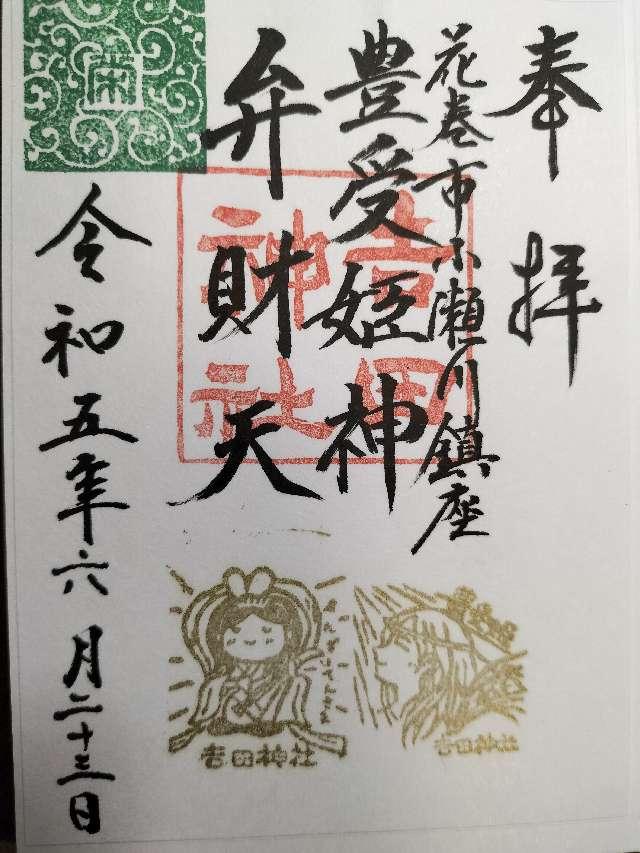 奉拝
花巻市小瀬川鎮座
豊受姫神
弁財天
令和五年六月二十三日
吉田
神社
べんざいてんさま
吉田神社
吉田神社